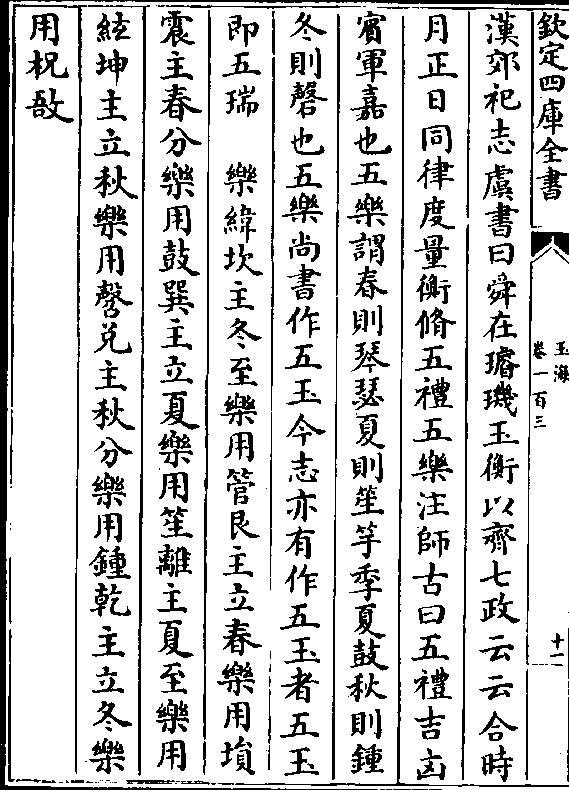 欽定四庫全書
玉海
卷一百三
十一
漢郊祀志虞書曰舜在璿璣玉衡以齊七政云云合時
月正日同律度量衡脩五禮五樂注師古曰五禮吉凶
賓軍嘉也五樂謂春則琴瑟夏則笙竽季夏鼓秋則鍾
冬則磬也五樂尚書作五玉今志亦有作五玉者五玉
即五瑞　樂緯坎主冬至樂用管艮主立春樂用塤
震主春分樂用鼓巽主立夏樂用笙離主夏至樂用
絃坤主立秋樂用磬兌主秋分樂用鍾乾主立冬樂
用柷敔